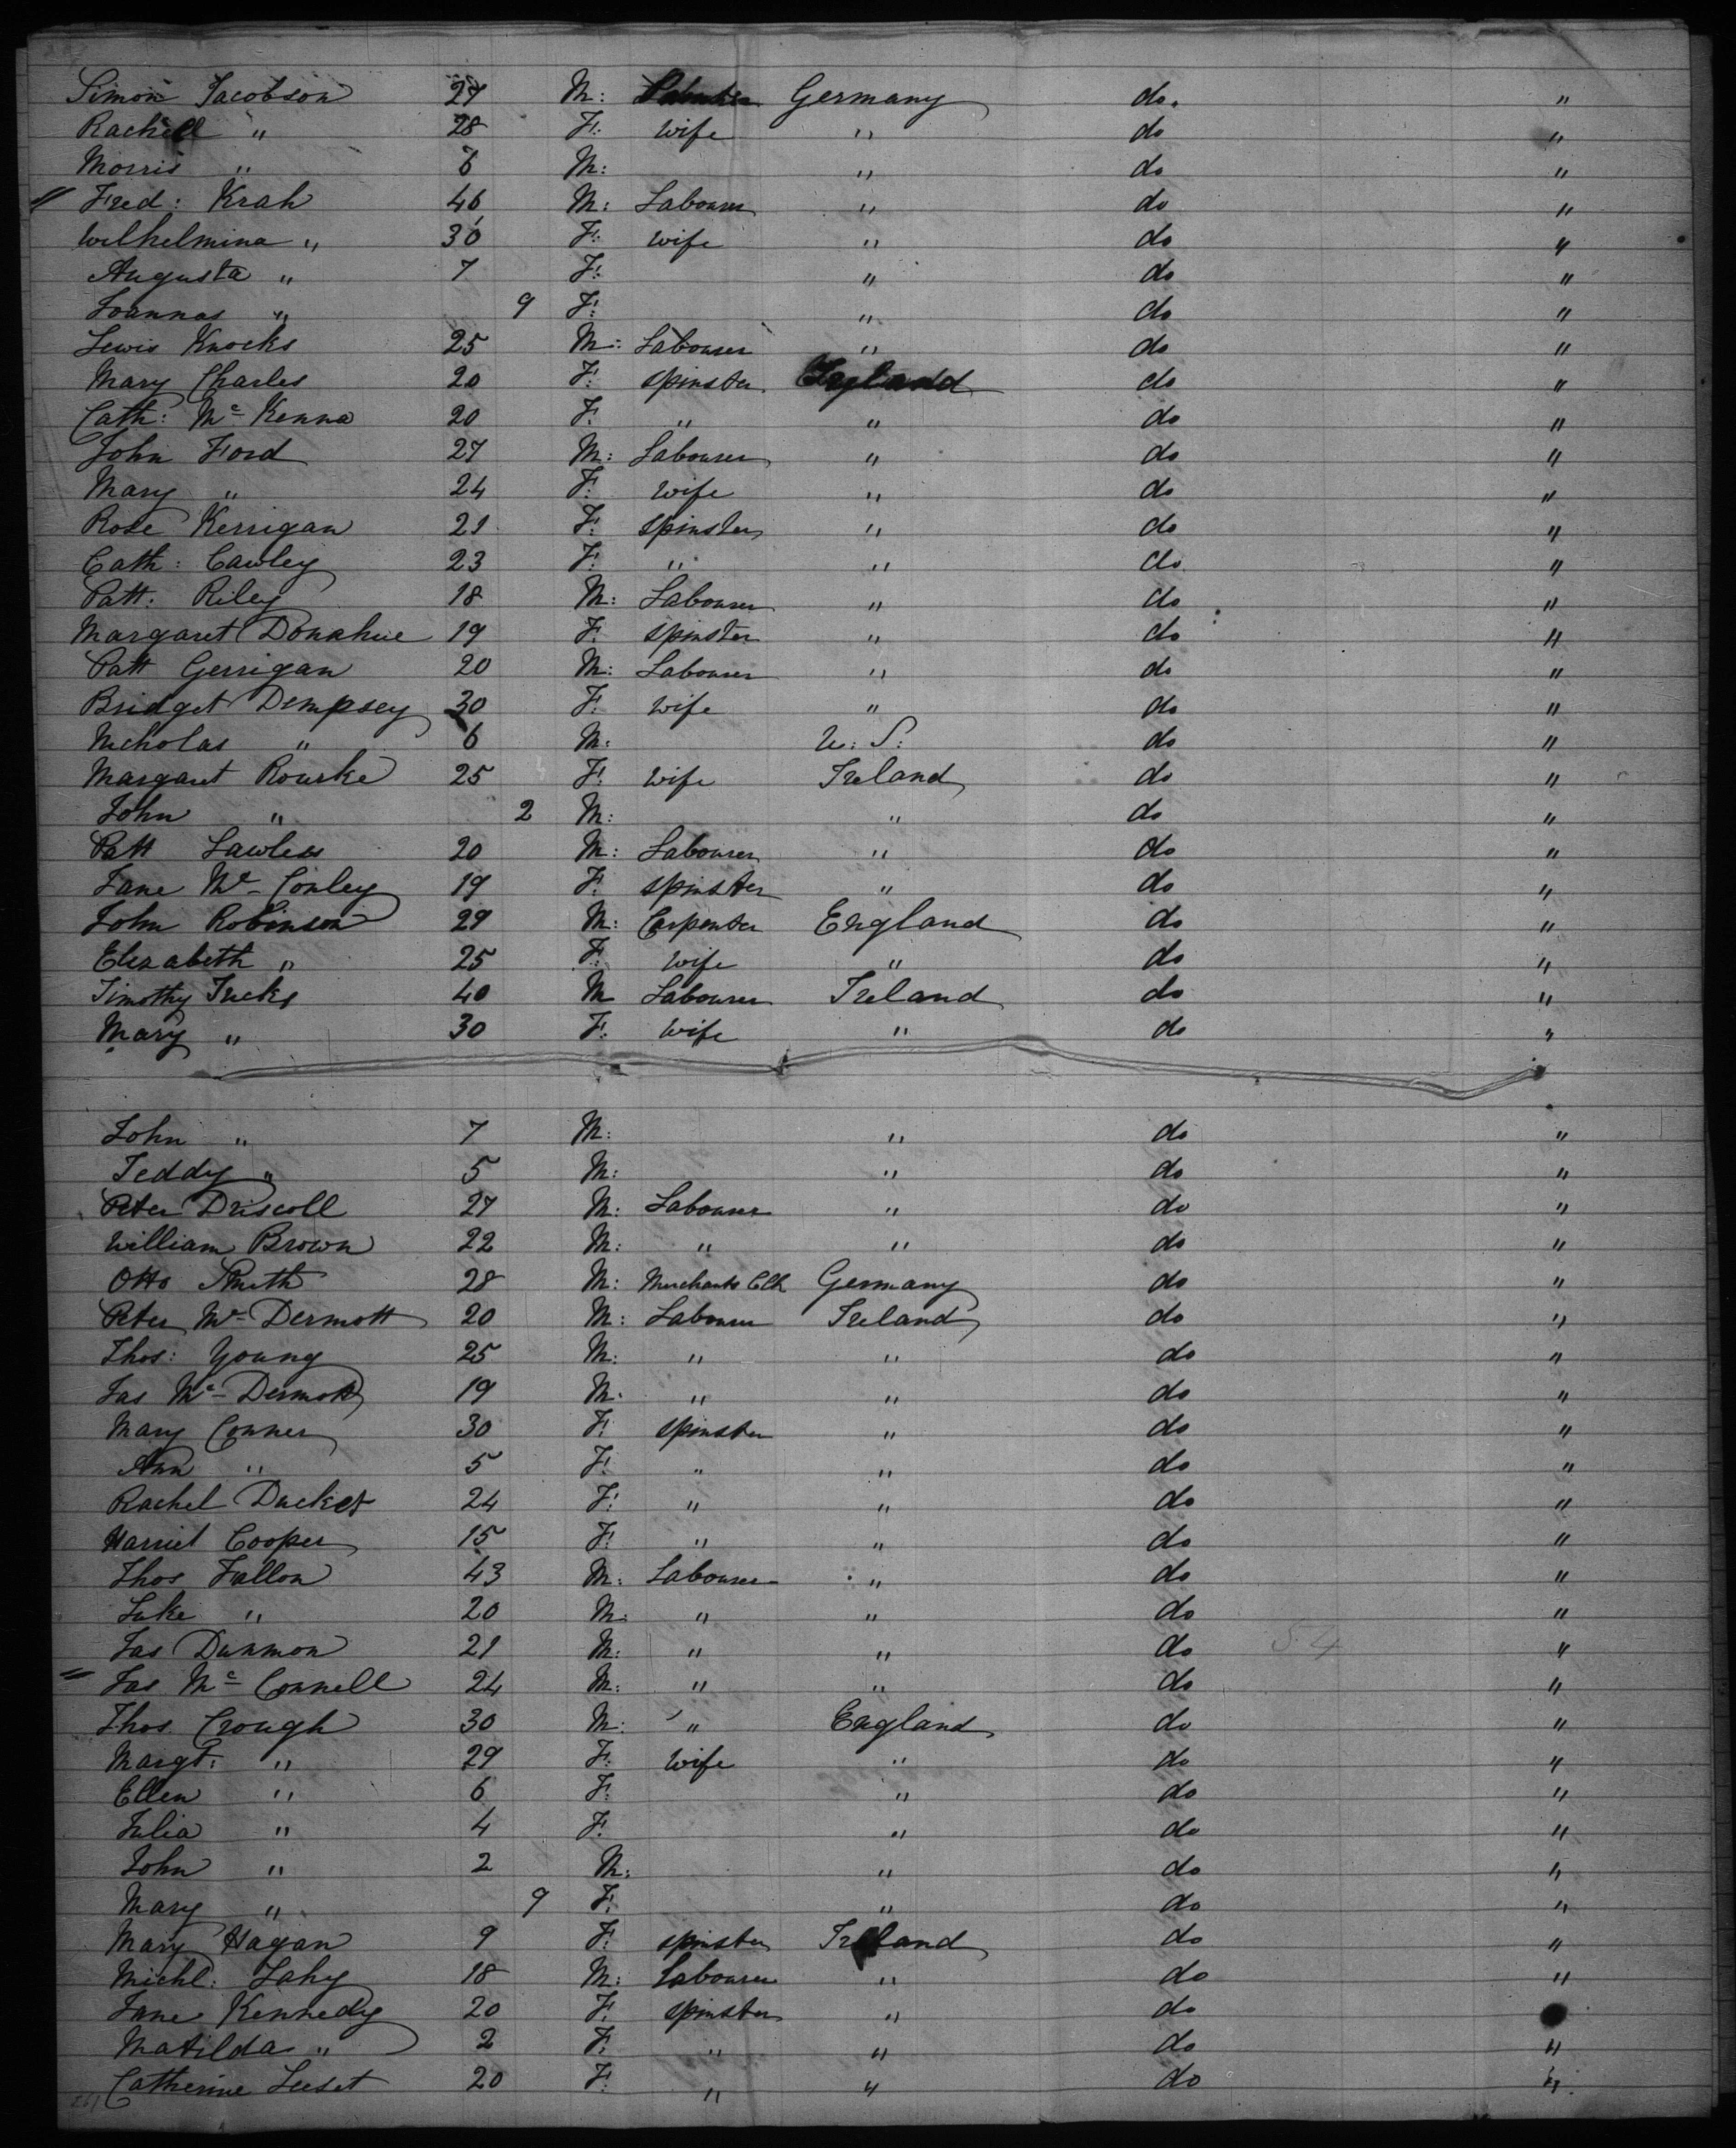 Simon Jacobson 27 M: Labourer Germany do. "
Rachell " 28 F: Wife " do "
Morris " 6 M: " do "
" Fred: Krah 46 M: Labourer " do "
Wilhelmina " 30 F: Wife " do "
Augusta " 7 F: " do "
Joannas " 9 F: " do "
Lewis Knocks 25 M: Labourer " do "
Mary Charles 20 F: Spinster do "
Cath: Mc Kenna 20 F. " " do "
John Ford 27 M: Labourer " do "
Mary " 24 F: Wife " do "
Rose Kerrigan 21 F: Spinster " do "
Cath: Cawley 23 F: " " do "
Patt: Riley 18 M: Labourer " do "
Margaret Donahue 19 F. Spinster " do "
Patt Gerrigan 20 M: Labourer " do "
Bridget Dempsey 30 F: Wife " do "
Nicholas " 6 M: U: S: do "
Margaret Rourke 25 F: Wife Ireland do "
John " 2 M: " do "
Patt Lawless 20 M: Labourer " do "
Jane Mc Conley 19 F. Spinster " do "
John Robinson 29 M: Carpenter England do "
Elizabeth " 25 F: Wife " do "
Timothy 40 M Labourer Ireland do "
Mary " 30 F: Wife " do "
John " 7 M: " do "
Teddy " 5 M: " do "
Peter Driscoll 27 M: Labourer " do "
William Brown 22 M: " " do "
Otto Smith 28 M: Merchants Clk Germany do "
Peter Mc Dermott 20 M: Labourer Ireland do "
Thos: Young 25 M: " " do "
Jas Mc Dermott 19 M. " " do "
Mary Conner 30 F: Spinster " do "
Ann " 5 F: " " do "
Rachel Ducket 24 F: " " do "
Harriet Cooper 15 F: " " do "
Thos Fallon 43 M: Labourer " do "
Luke " 20 M: " " do "
Jas Dunmon 21 M: " " do 54 "
" Jas Mc Connell 24 M: " " do "
Thos. Crough 30 M: " England do "
Margt: " 29 F: Wife " do "
Ellen " 6 F: " do "
Julia " 4 F: " do "
John " 2 M: " do "
Mary " 9 F: " do "
Mary Hagan 9 F: Spinster Ireland do "
Michl: Lahy 18 M: Labourer " do "
Jane Kennedy 20 F: Spinster " do
Matilda " 2 F: " " do "
Catherine Leeset 20 F: " " do "